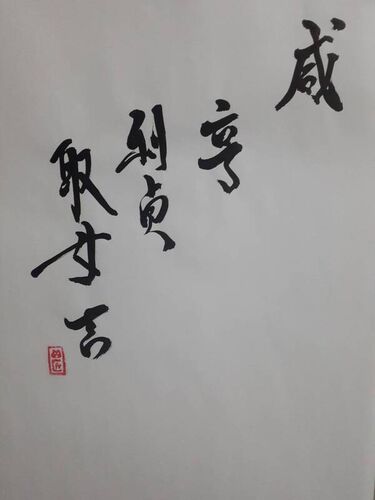 咸
亨
利贞
取女吉